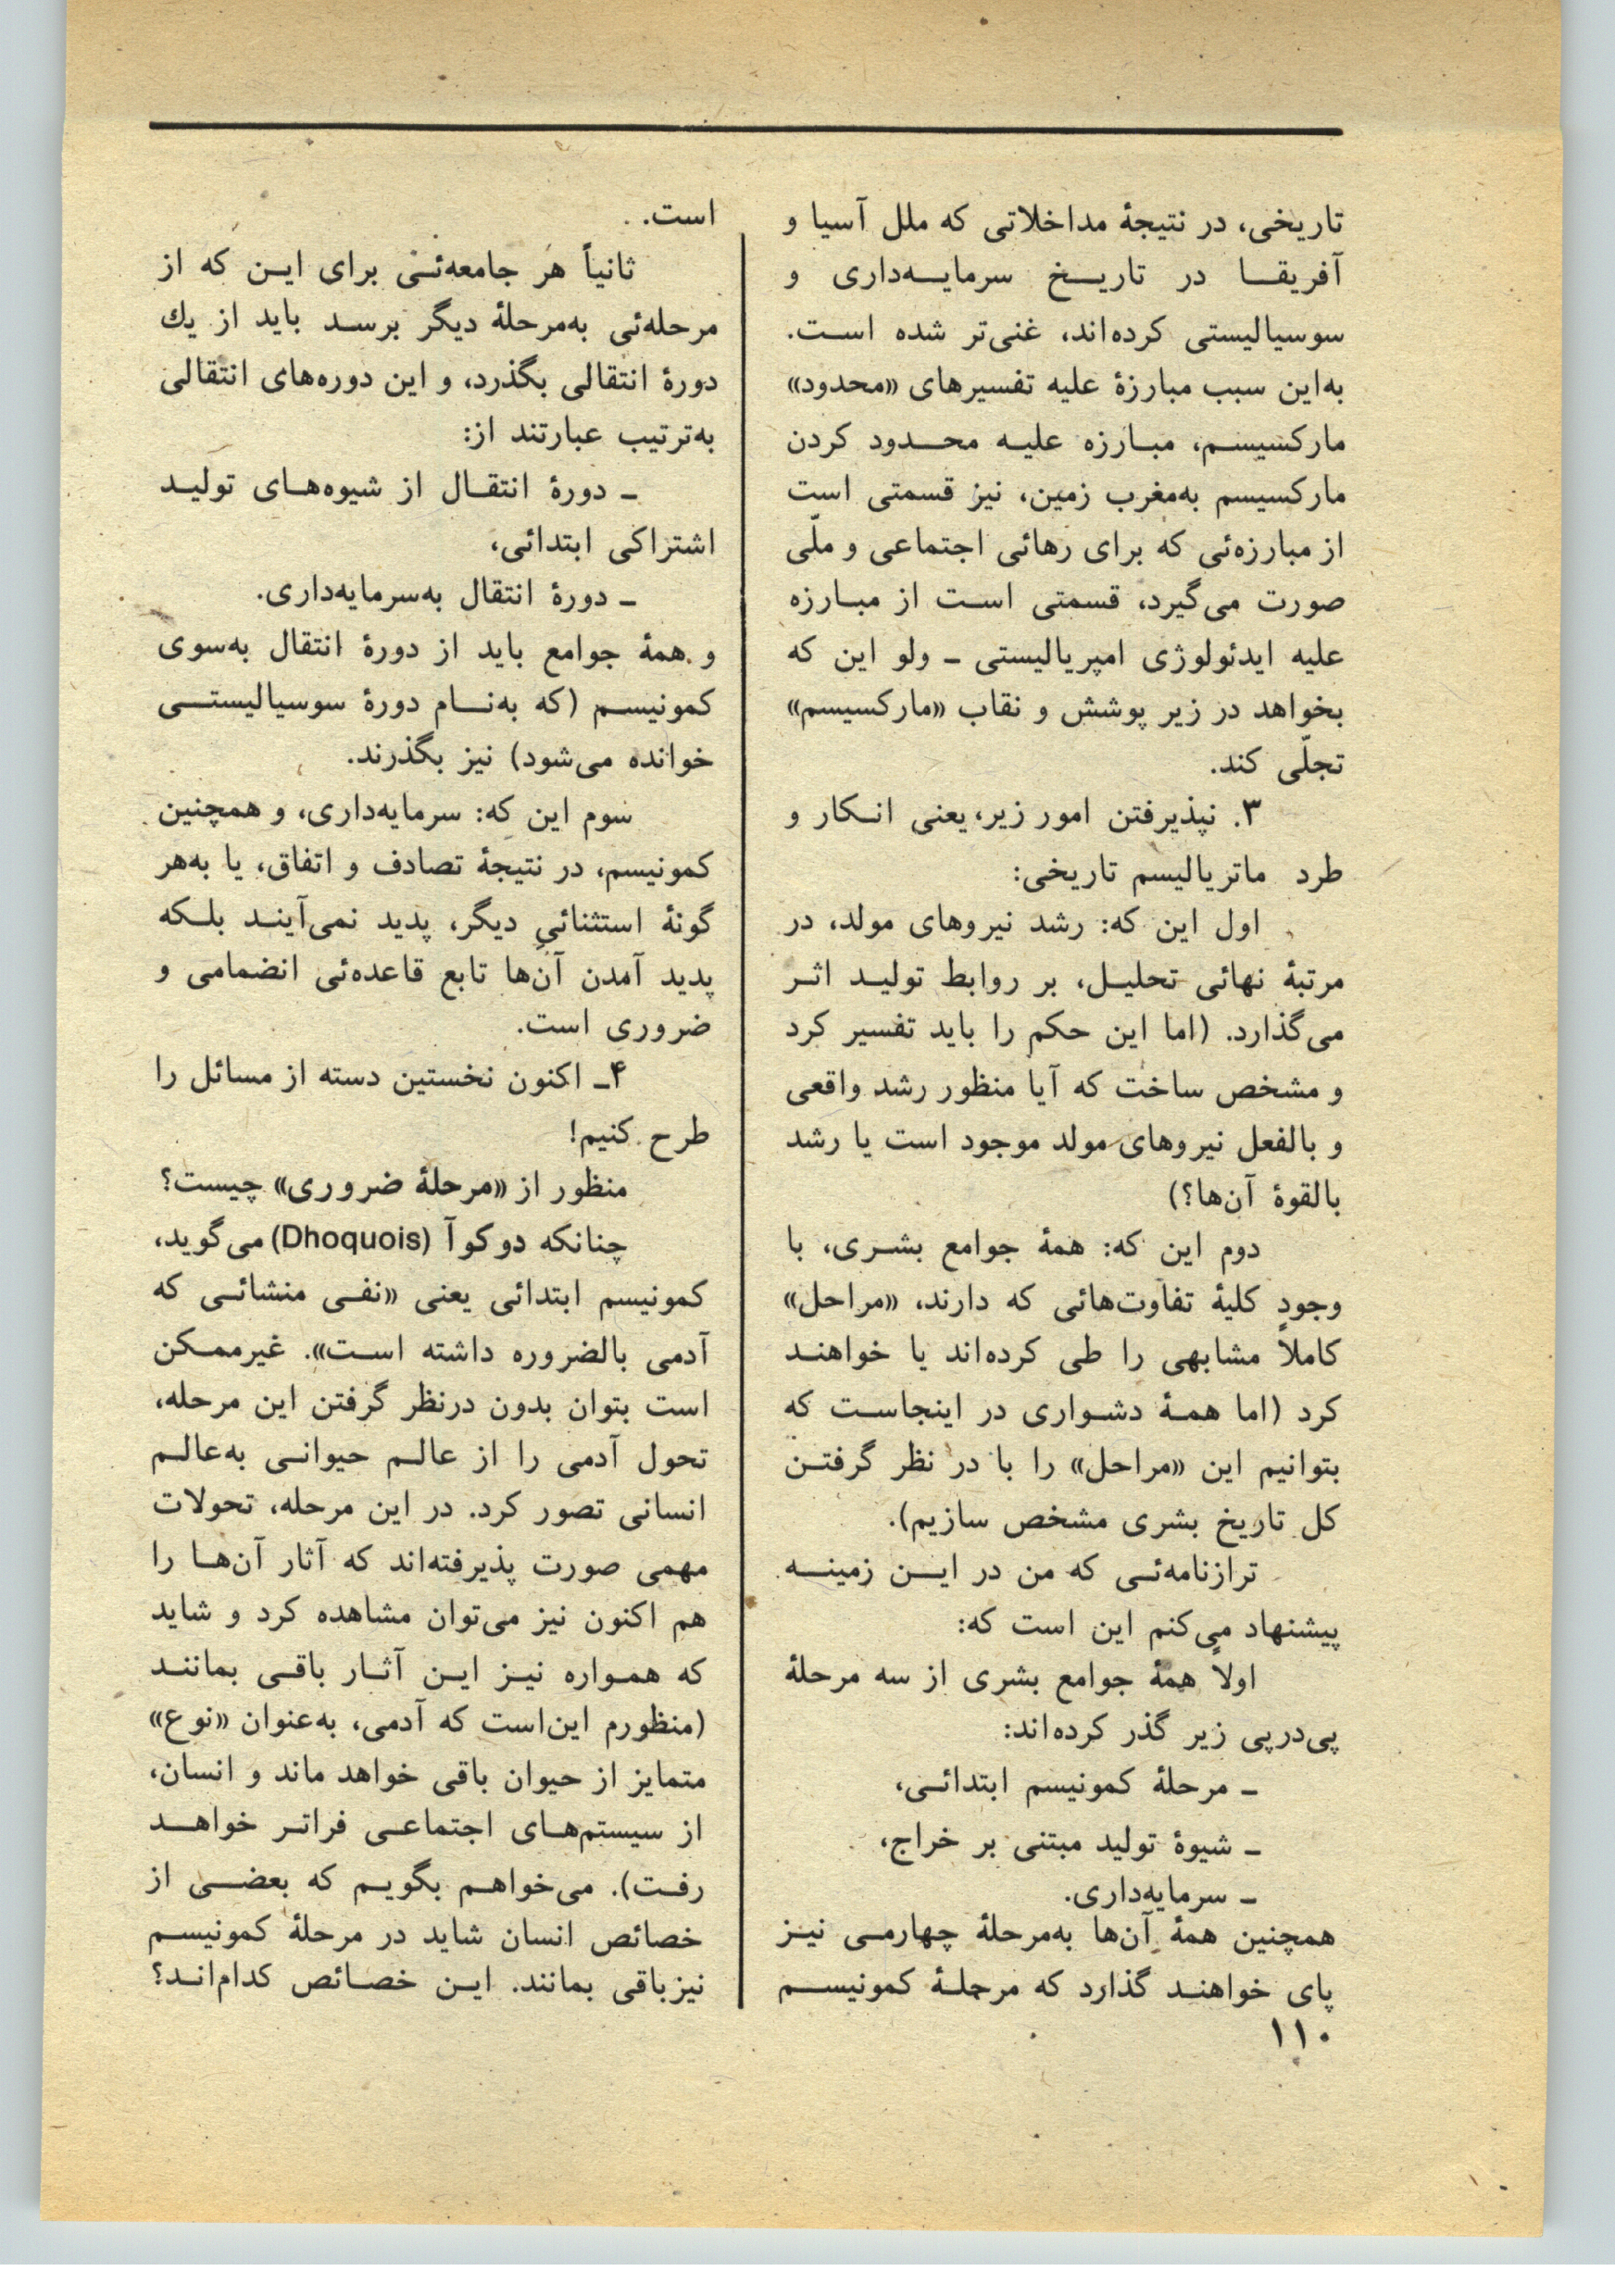 تاریخی، در نتیجهٔ مداخلاتی که ملل آسیا و
آفریقا در تاریخ سرمایه‌داری و
سوسیالیستی کرده‌اند، غنی‌تر شده است.
به‌این سبب مبارزهٔ علیه تفسیرهای «محدود»
مارکسیسم، مبارزه علیه محدود کردن
مارکسیسم به‌مغرب زمین، نیز قسمتی است
از مبارزه‌ئی که برای رهائی اجتماعی و ملّی
صورت می‌گیرد، قسمتی است از مبارزه
علیه ایدئولوژی امپریالیستی ـ ولو این که
بخواهد در زیر پوشش و نقاب «مارکسیسم»
تجلّی کند.
۳. نپذیرفتن امور زیر، یعنی انکار و
طرد ماتریالیسم تاریخی:
اول این که: رشد نیروهای مولد، در
مرتبهٔ نهائی تحلیل، بر روابط تولید اثر
می‌گذارد. (اما این حکم را باید تفسیر کرد
و مشخص ساخت که آیا منظور رشد واقعی
و بالفعل نیروهای مولد موجود است یا رشد
بالقوهٔ آن‌ها؟)
دوم این که: همهٔ جوامع بشری، با
وجودِ کلیهٔ تفاوت‌هائی که دارند، «مراحل»
کاملاً مشابهی را طی کرده‌اند یا خواهند
کرد (اما همهٔ دشواری در اینجاست که
بتوانیم این «مراحل» را با در نظر گرفتن
کل تاریخ بشری مشخص سازیم).
ترازنامه‌ئی که من در این زمینه
پیشنهاد می‌کنم این است که:
اولاً همهٔ جوامع بشری از سه مرحلهٔ
پی‌درپی زیر گذر کرده‌اند:
ـ مرحلهٔ کمونیسم ابتدائی،
ـ شیوهٔ تولید مبتنی بر خراج،
ـ سرمایه‌داری.
همچنین همهٔ آن‌ها به‌مرحلهٔ چهارمی نیز
پای خواهند گذارد که مرحلهٔ کمونیسم
۱۱۰
است.
ثانیاً هر جامعه‌ئی برای این که از
مرحله‌ئی به‌مرحلهٔ دیگر برسد باید از یك
دورهٔ انتقالی بگذرد، و این دوره‌های انتقالی
به‌ترتیب عبارتند از:
ـ دورهٔ انتقال از شیوه‌های تولید
اشتراکی ابتدائی،
ـ دورهٔ انتقال به‌سرمایه‌داری.
و همهٔ جوامع باید از دورهٔ انتقال به‌سوی
کمونیسم (که به‌نام دورهٔ سوسیالیستی
خوانده می‌شود) نیز بگذرند.
سوم این که: سرمایه‌داری، و همچنین
کمونیسم، در نتیجهٔ تصادف و اتفاق، یا به‌هر
گونهٔ استثنائیِ دیگر، پدید نمی‌آیند بلکه
پدید آمدن آن‌ها تابع قاعده‌ئی انضمامی و
ضروری است.
۴ـ اکنون نخستین دسته از مسائل را
طرح کنیم!
منظور از «مرحلهٔ ضروری» چیست؟
چنانکه دوکوآ (Dhoquois) می‌گوید،
کمونیسم ابتدائی یعنی «نفی منشائی که
آدمی بالضروره داشته است». غیرممکن
است بتوان بدون درنظر گرفتن این مرحله،
تحول آدمی را از عالم حیوانی به‌عالم
انسانی تصور کرد. در این مرحله، تحولات
مهمی صورت پذیرفته‌اند که آثار آن‌ها را
هم اکنون نیز می‌توان مشاهده کرد و شاید
که همواره نیز این آثار باقی بمانند
(منظورم این‌است که آدمی، به‌عنوان «نوع»
متمایز از حیوان باقی خواهد ماند و انسان،
از سیستم‌های اجتماعی فراتر خواهد
رفت). می‌خواهم بگویم که بعضی از
خصائص انسان شاید در مرحلهٔ کمونیسم
نیزباقی بمانند. این خصائص کدام‌اند؟